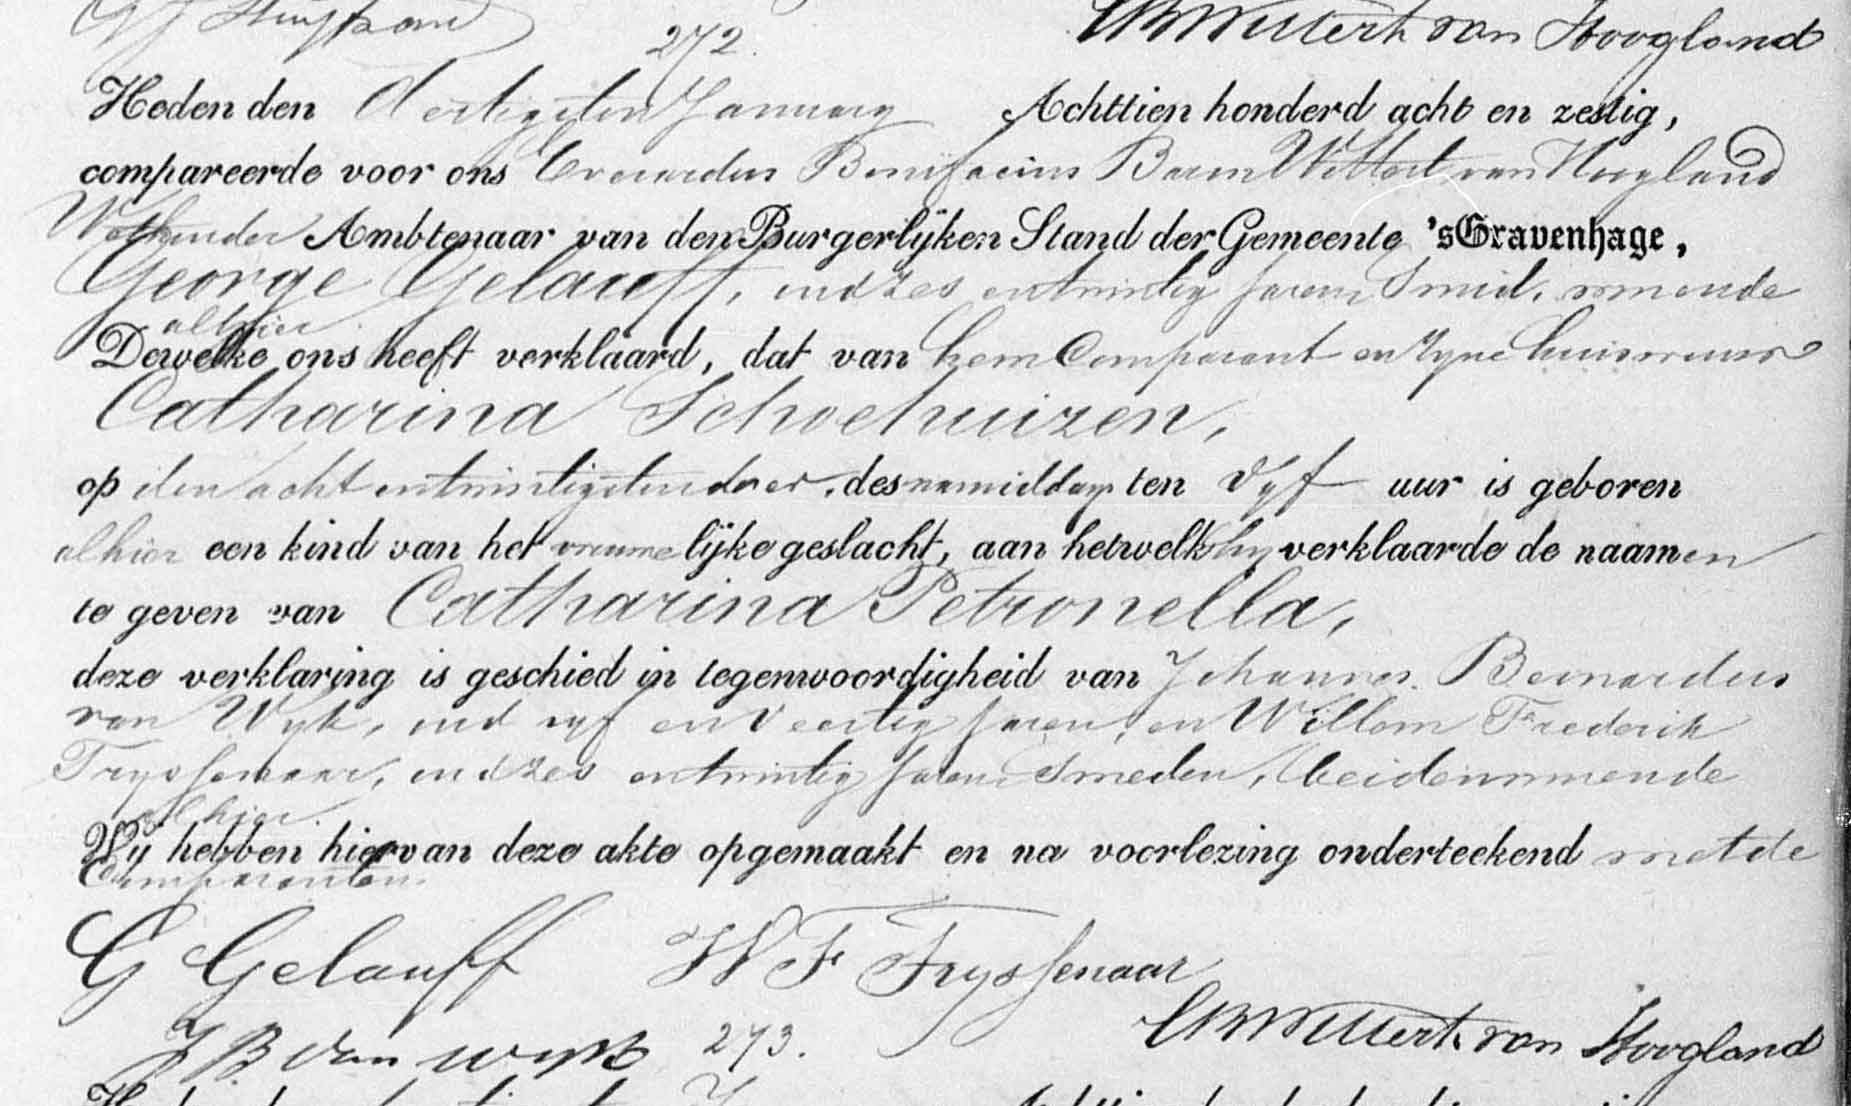 272.
EBWittert van Hoogland
Heden den Dertigsten January Achttien honderd acht en zestig,
compareerde voor ons Everardus Bonifacius Baron Wittert van Hoogland
Wethouder Ambtenaar van den Burgerlijken Stand der Gemeente 'sGravenhage,
George Gelauff, oud zes en twintig jaren Smid, wonende
alhier
Dewelke ons heeft verklaard, dat van hem Comparant en zyne huisvrouw
Catharina Schoehuizen,
op den acht en twintigsten dezer, des namiddags ten vyf uur is geboren
alhier een kind van het vrouwelijke geslacht, aan hetwelk hy verklaarde de naamen
te geven van Catharina Petronella,
deze verklaring is geschied in tegenwoordigheid van Johannes Bernardus
van Wyk, oud vyf en veertig jaren, en Willem Frederik
Fryssenaar, oud zes en twintig jaren Smeden, beiden wonende
alhier.
Wij hebben hiervan deze akte opgemaakt en na voorlezing onderteekend met de
Comparanten.
G Gelauff W F Fryssenaar
J B van Wyk 273. EBWittert van Hoogland